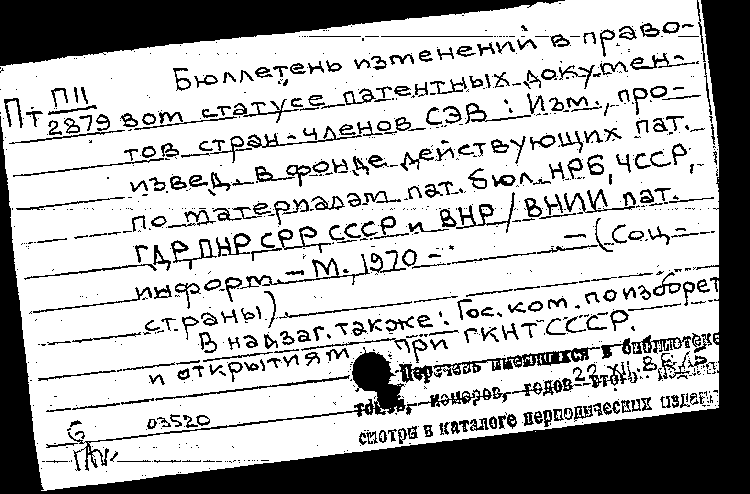 Бюллетень изменений в право-
Пт П11/2879 вом статусе патентных докумен-
тов стран-членов СЭВ: Изм., про-
извед. в фонде действующих пат.
по материалам пат. бюл. НРБ, ЧССР,
ГДР, ПНР, СРР, СССР и ВНР / ВНИИ пат.
информ. — М., 1970 — . — (Соц-
страны).
В надзаг. также: Гос. ком. по изобрет
и открытиям при ГКНТ СССР.
Перечень имеющихся в библиотеке
томов, номеров, годов этого издания
смотри в каталоге периодических издан
б 03520